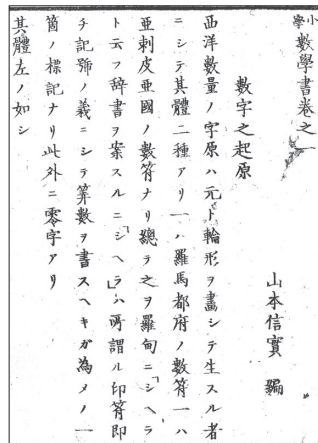 小學數學書卷之一
山本信實 編
數字之起原
西洋數量ノ字原ハ元ト輪形ヲ畫シテ生スル者
ニシテ其體二種アリ一ハ羅馬都府ノ數符一ハ
亜刺皮亜國ノ數符ナリ總テ之ヲ羅甸ニ「シヘラ」
ト云フ辞書ヲ案スルニ「シヘラ」ハ所謂ル印符即
チ記號ノ義ニシテ筭數ヲ書スヘキガ為メノ一
箇ノ標記ナリ此外ニ零字アリ
其體左ノ如シ